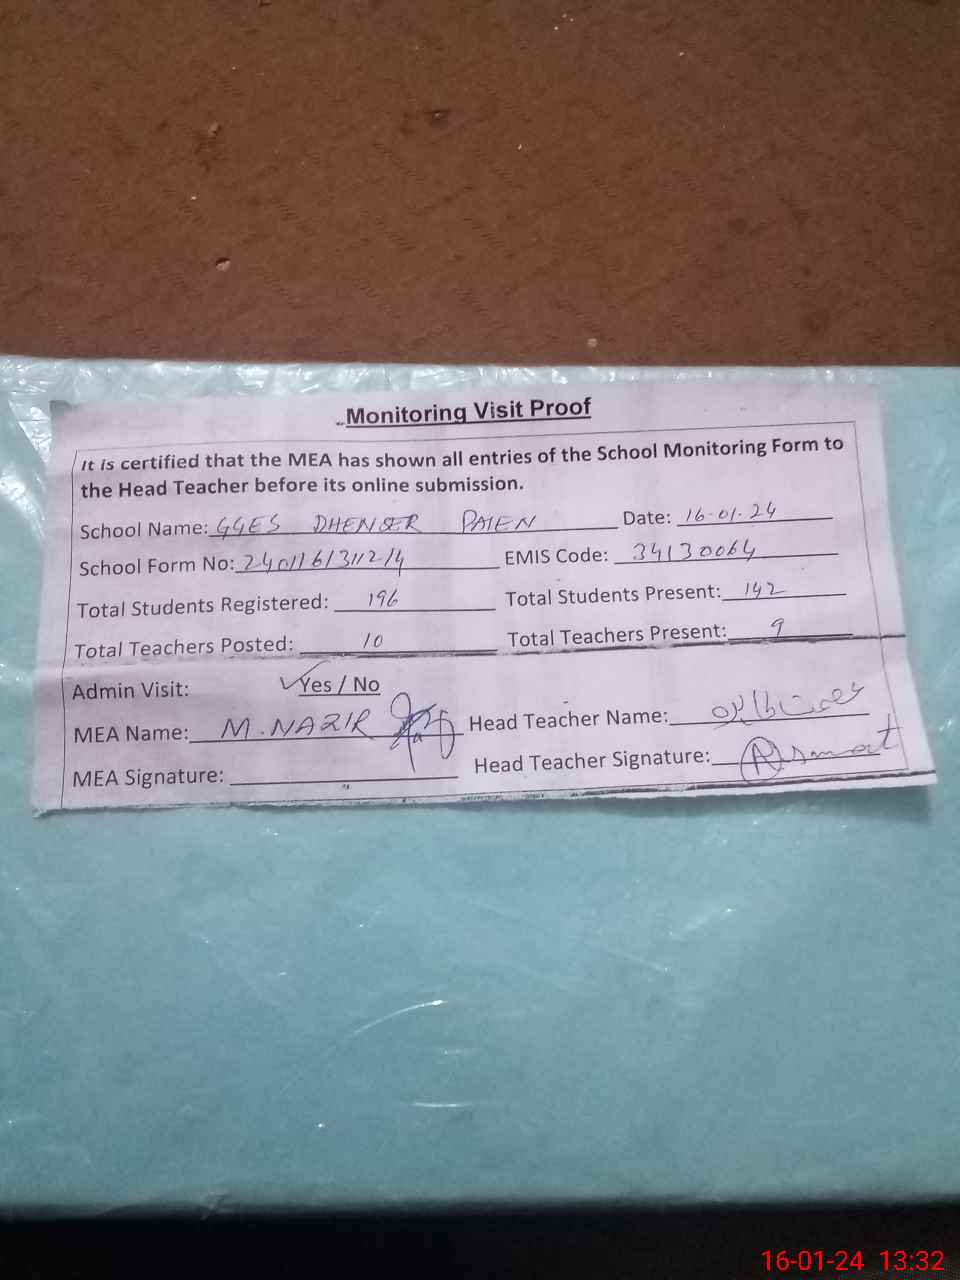 Monitoring Visit Proof
It is certified that the MEA has shown all entries of the School Monitoring Form to
the Head Teacher before its online submission.
School Name: GGES DHENSER PAIEN Date: 16.01.24
School Form No: 240116131214 EMIS Code: 34130064
Total Students Registered: 196 Total Students Present: 142
Total Teachers Posted: 10 Total Teachers Present: 9
Admin Visit: Yes / No
MEA Name: M. NAZIR Head Teacher Name: عصمت طاہرہ
MEA Signature: Head Teacher Signature: Asmat
16-01-24 13:32